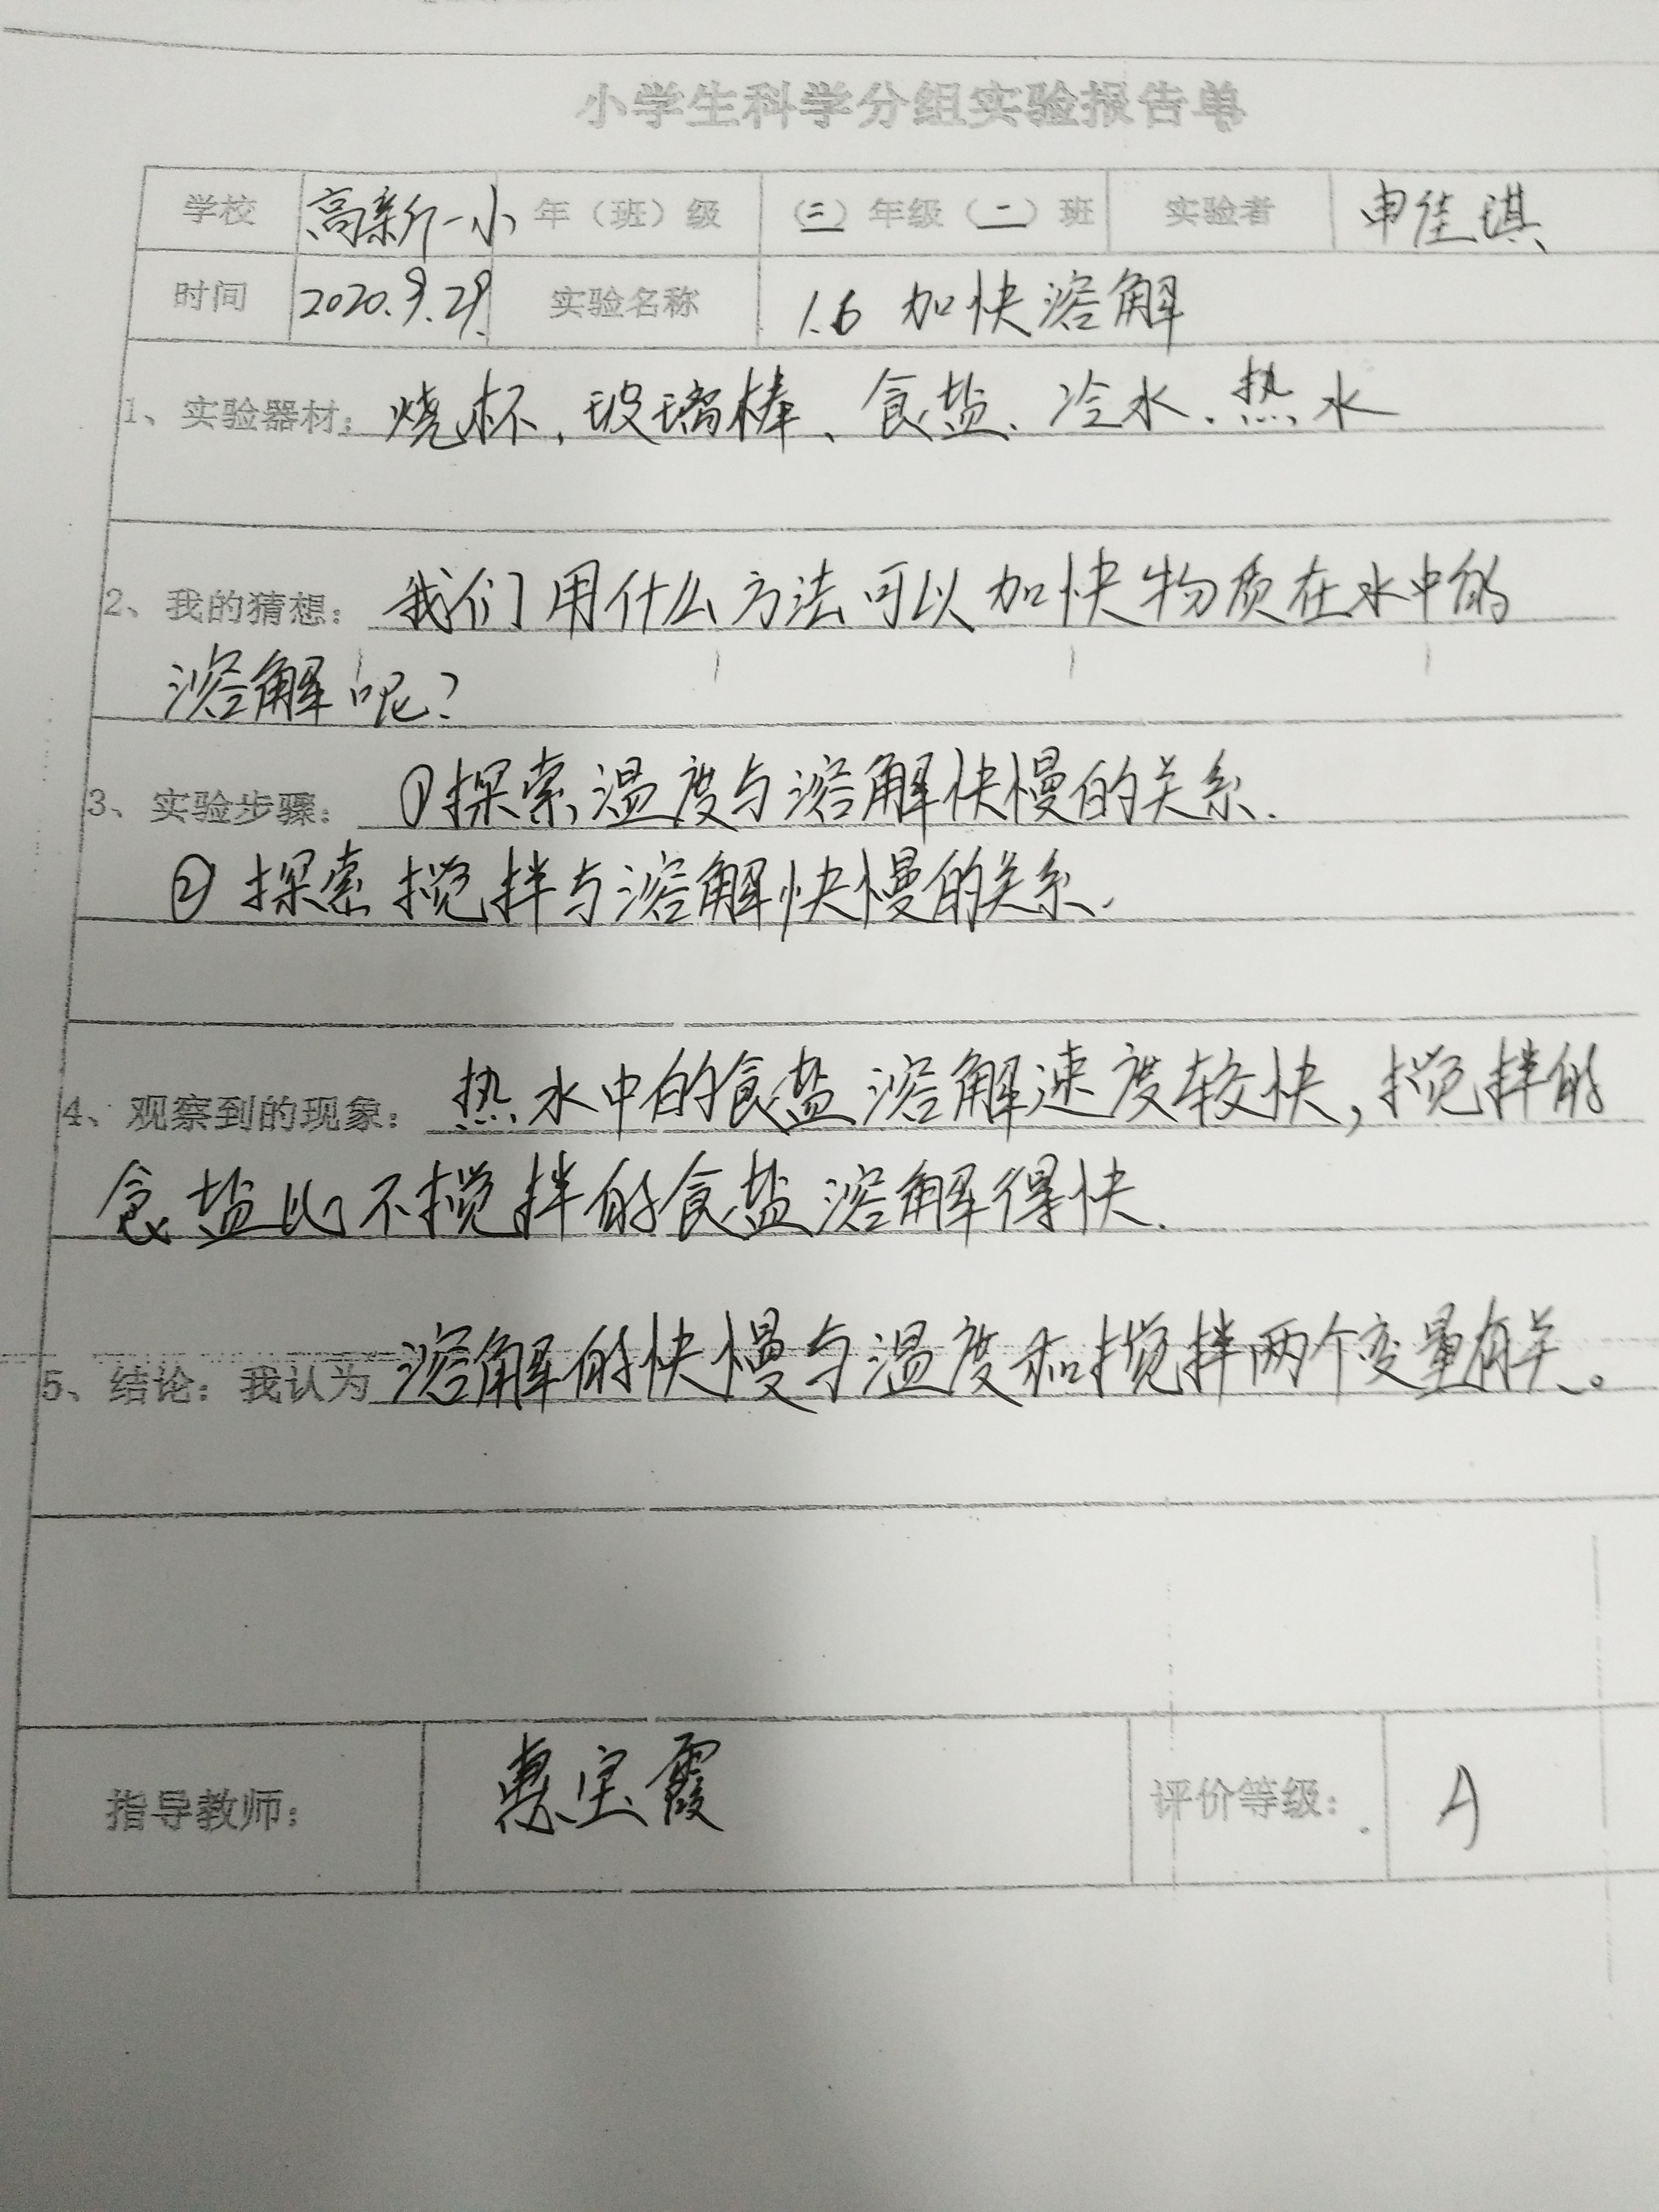 小学生科学分组实验报告单
学校 高新一小 年（班）级 （三）年级（一）班 实验者 申佳琪
时间 2020.9.29. 实验名称 1.6 加快溶解
1、实验器材：烧杯、玻璃棒、食盐、冷水、热水
2、我的猜想：我们用什么方法可以加快物质在水中的
溶解呢？
3、实验步骤：①探索温度与溶解快慢的关系.
②探索搅拌与溶解快慢的关系.
4、观察到的现象：热水中的食盐溶解速度较快，搅拌的
食盐比不搅拌的食盐溶解得快.
5、结论：我认为溶解的快慢与温度和搅拌两个变量有关。
指导教师： 惠宝霞 评价等级： A